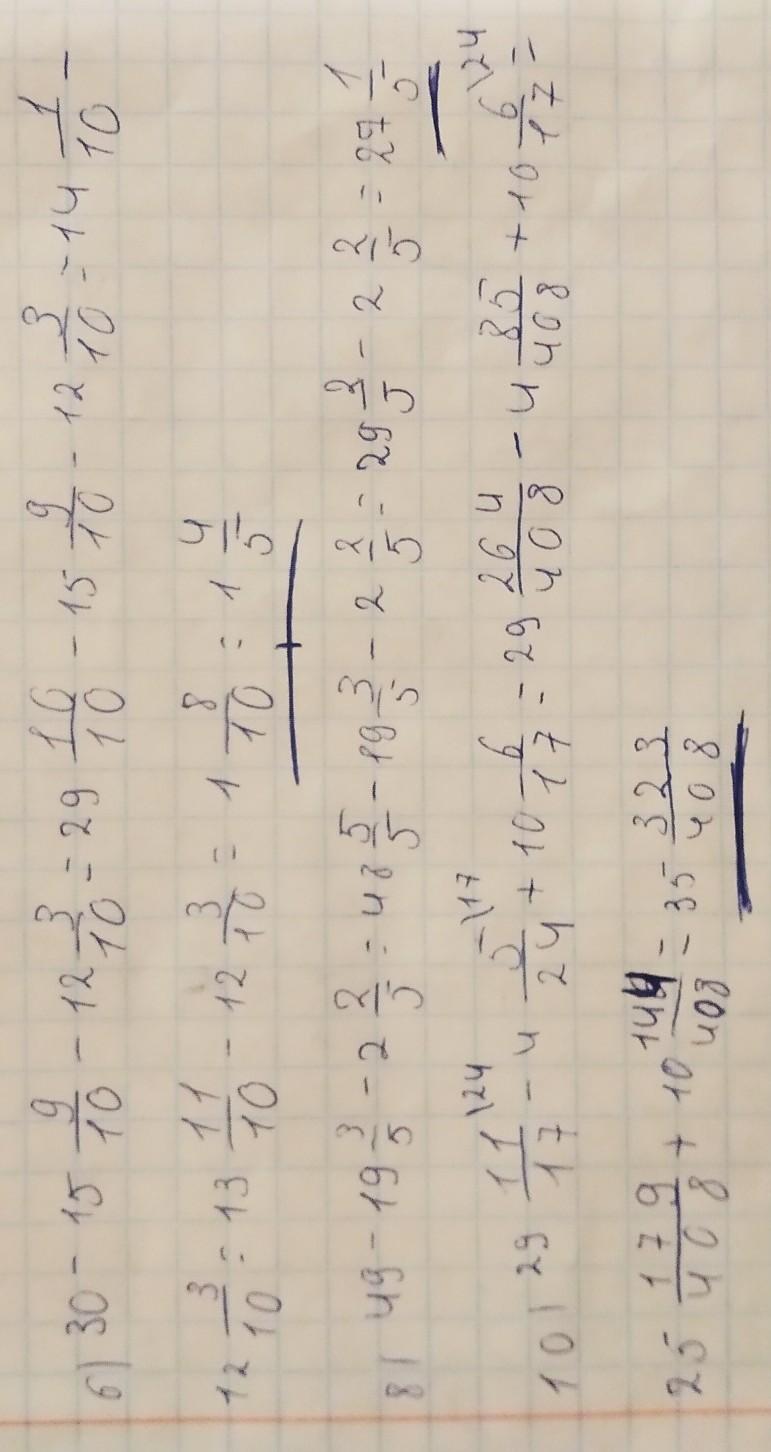 6) 30 - 15 9/10 - 12 3/10 = 29 10/10 - 15 9/10 - 12 3/10 = 14 1/10 -
12 3/10 = 13 11/10 - 12 3/10 = 1 8/10 = 1 4/5
8) 49 - 19 3/5 - 2 2/5 = 48 5/5 - 19 3/5 - 2 2/5 = 29 2/5 - 2 2/5 = 27 1/5
10) 29 11/17 \24 - 4 5/24 \17 + 10 6/17 = 29 264/408 - 4 85/408 + 10 6/17 \24 =
25 179/408 + 10 144/408 = 35 323/408